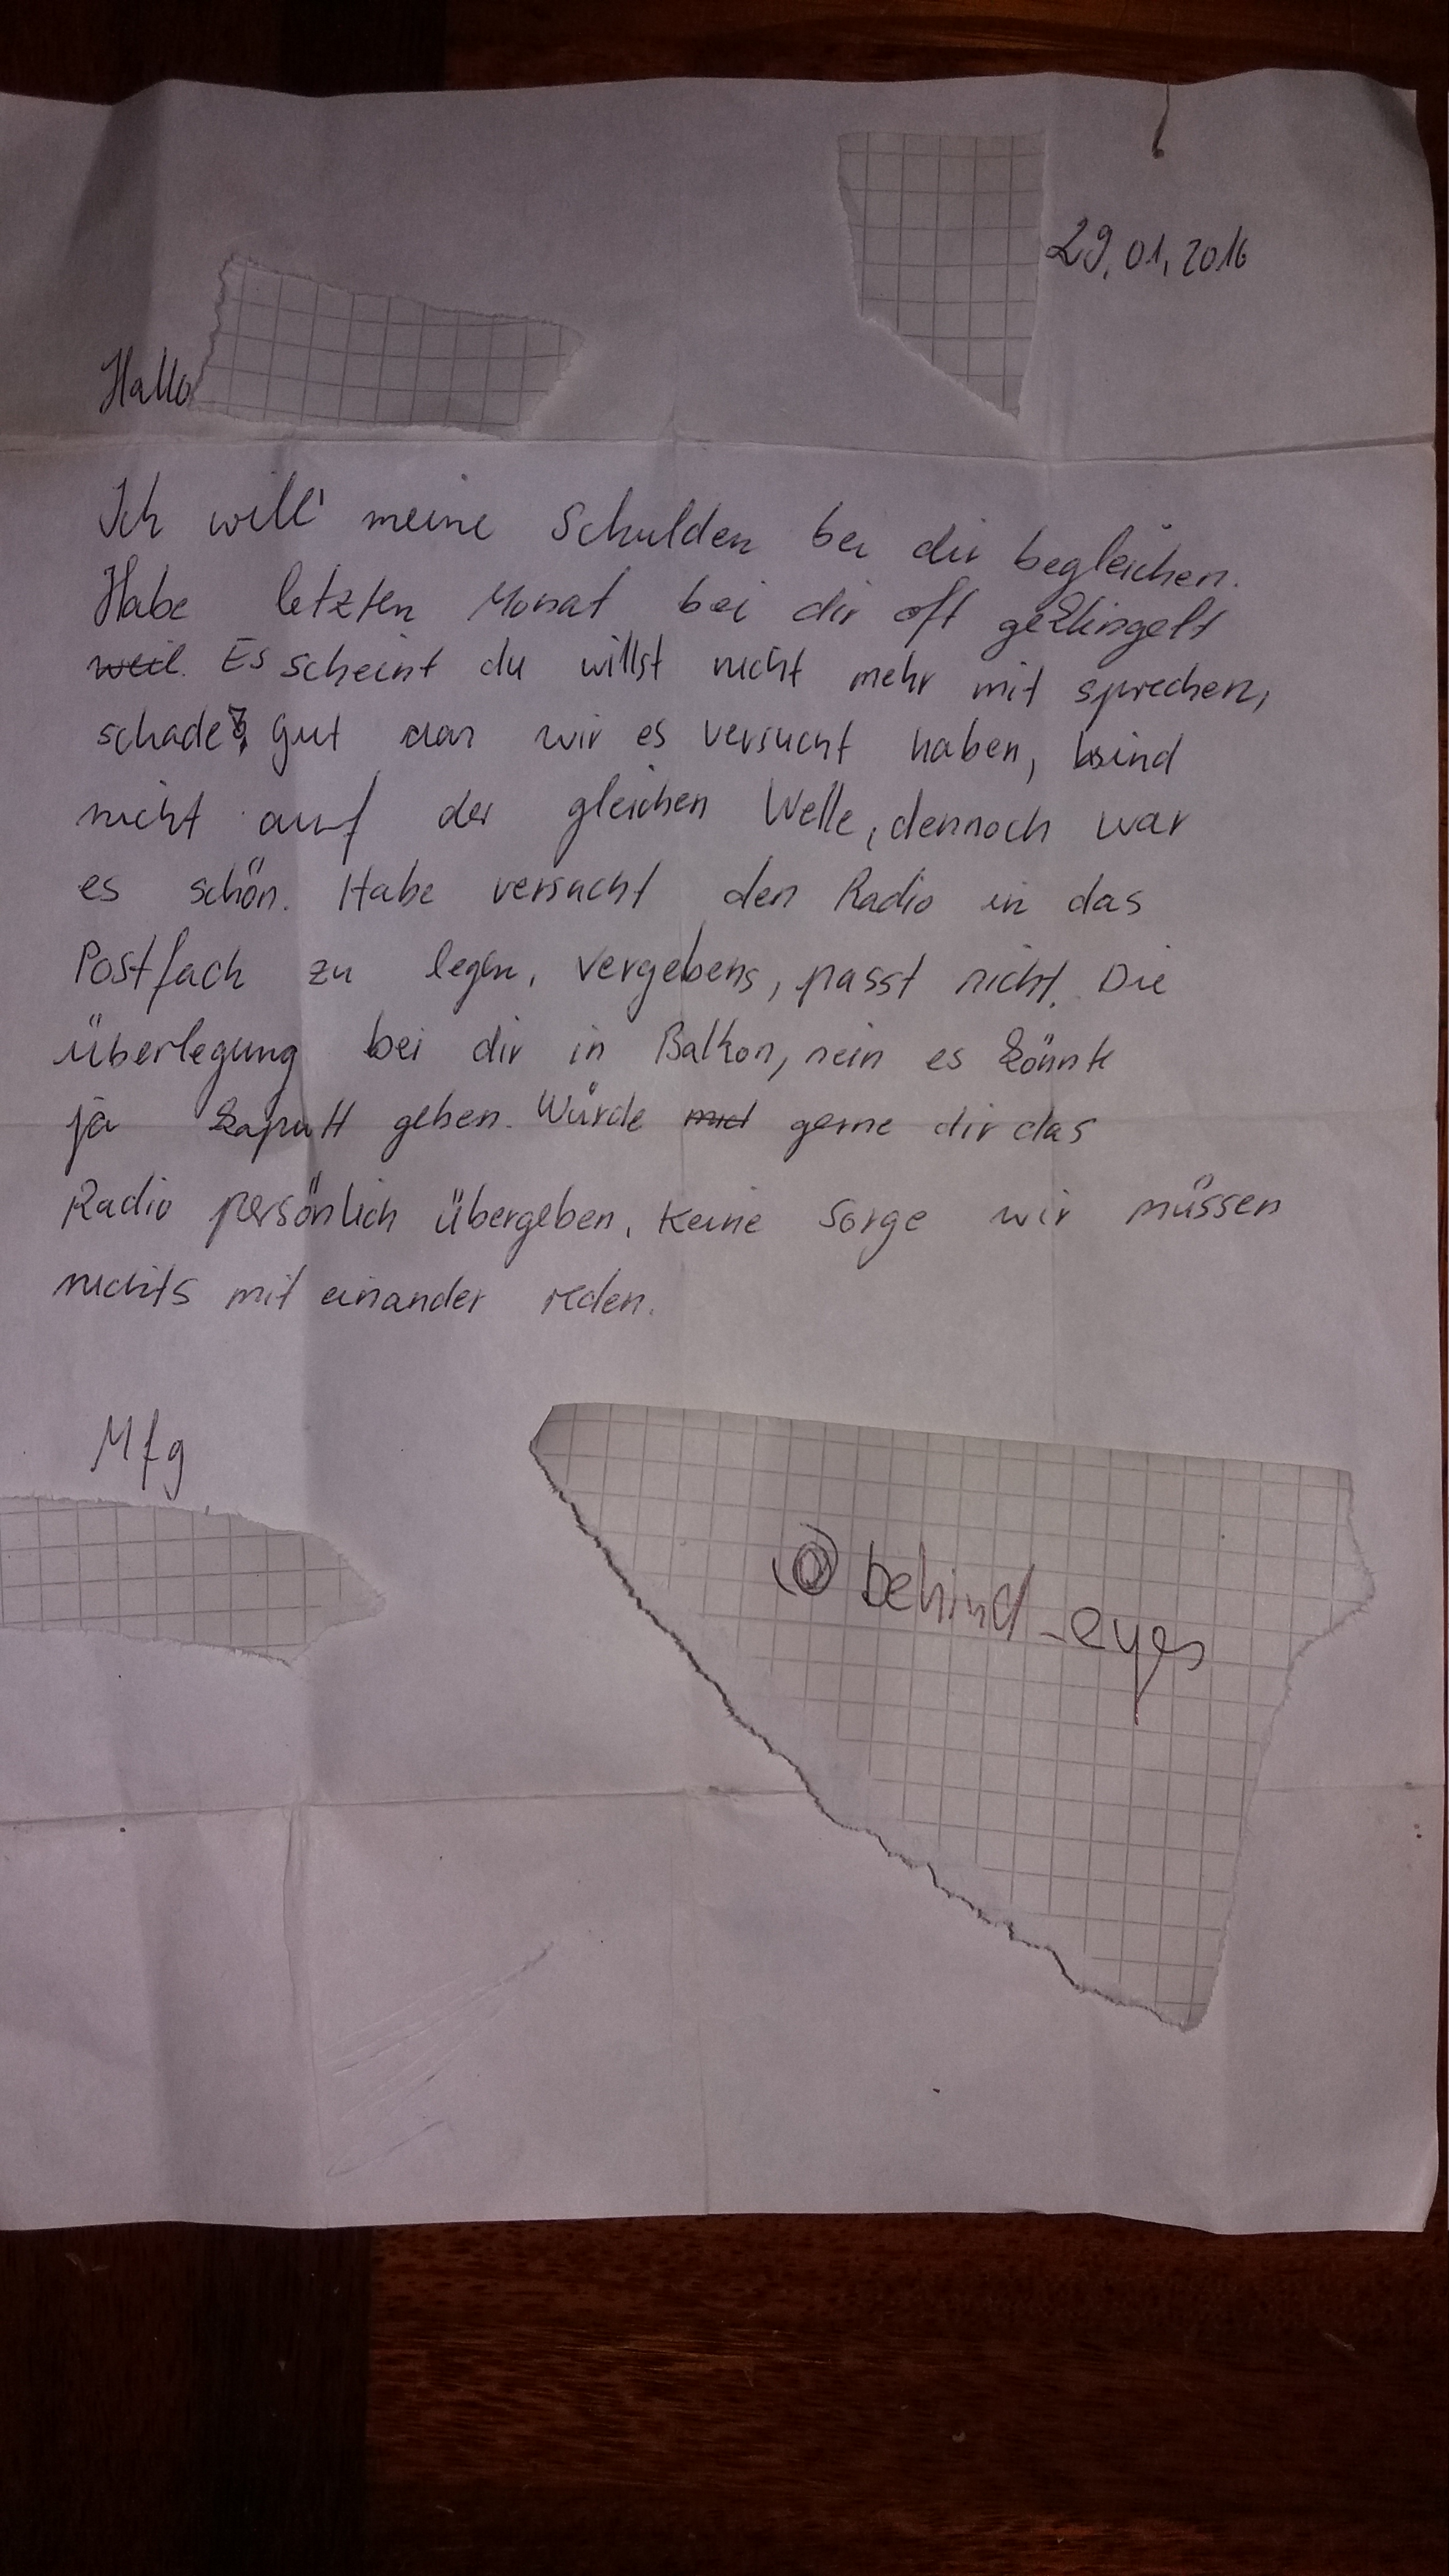 29.01.2016
Hallo
Ich will' meine Schulden bei dir begleichen.
Habe letzten Monat bei dir oft geklingelt
weil. Es scheint du willst nicht mehr mit sprechen,
schade, gut dan wir es versucht haben, sind
nicht auf der gleichen Welle, dennoch war
es schön. Habe versucht den Radio in das
Postfach zu legen, vergebens, passt nicht. Die
überlegung bei dir in Balkon, nein es könnte
ja kaputt gehen. Würde gerne dir das
Radio persönlich übergeben, keine Sorge wir müssen
nichts mit einander reden.
Mfg
@behind_eyes